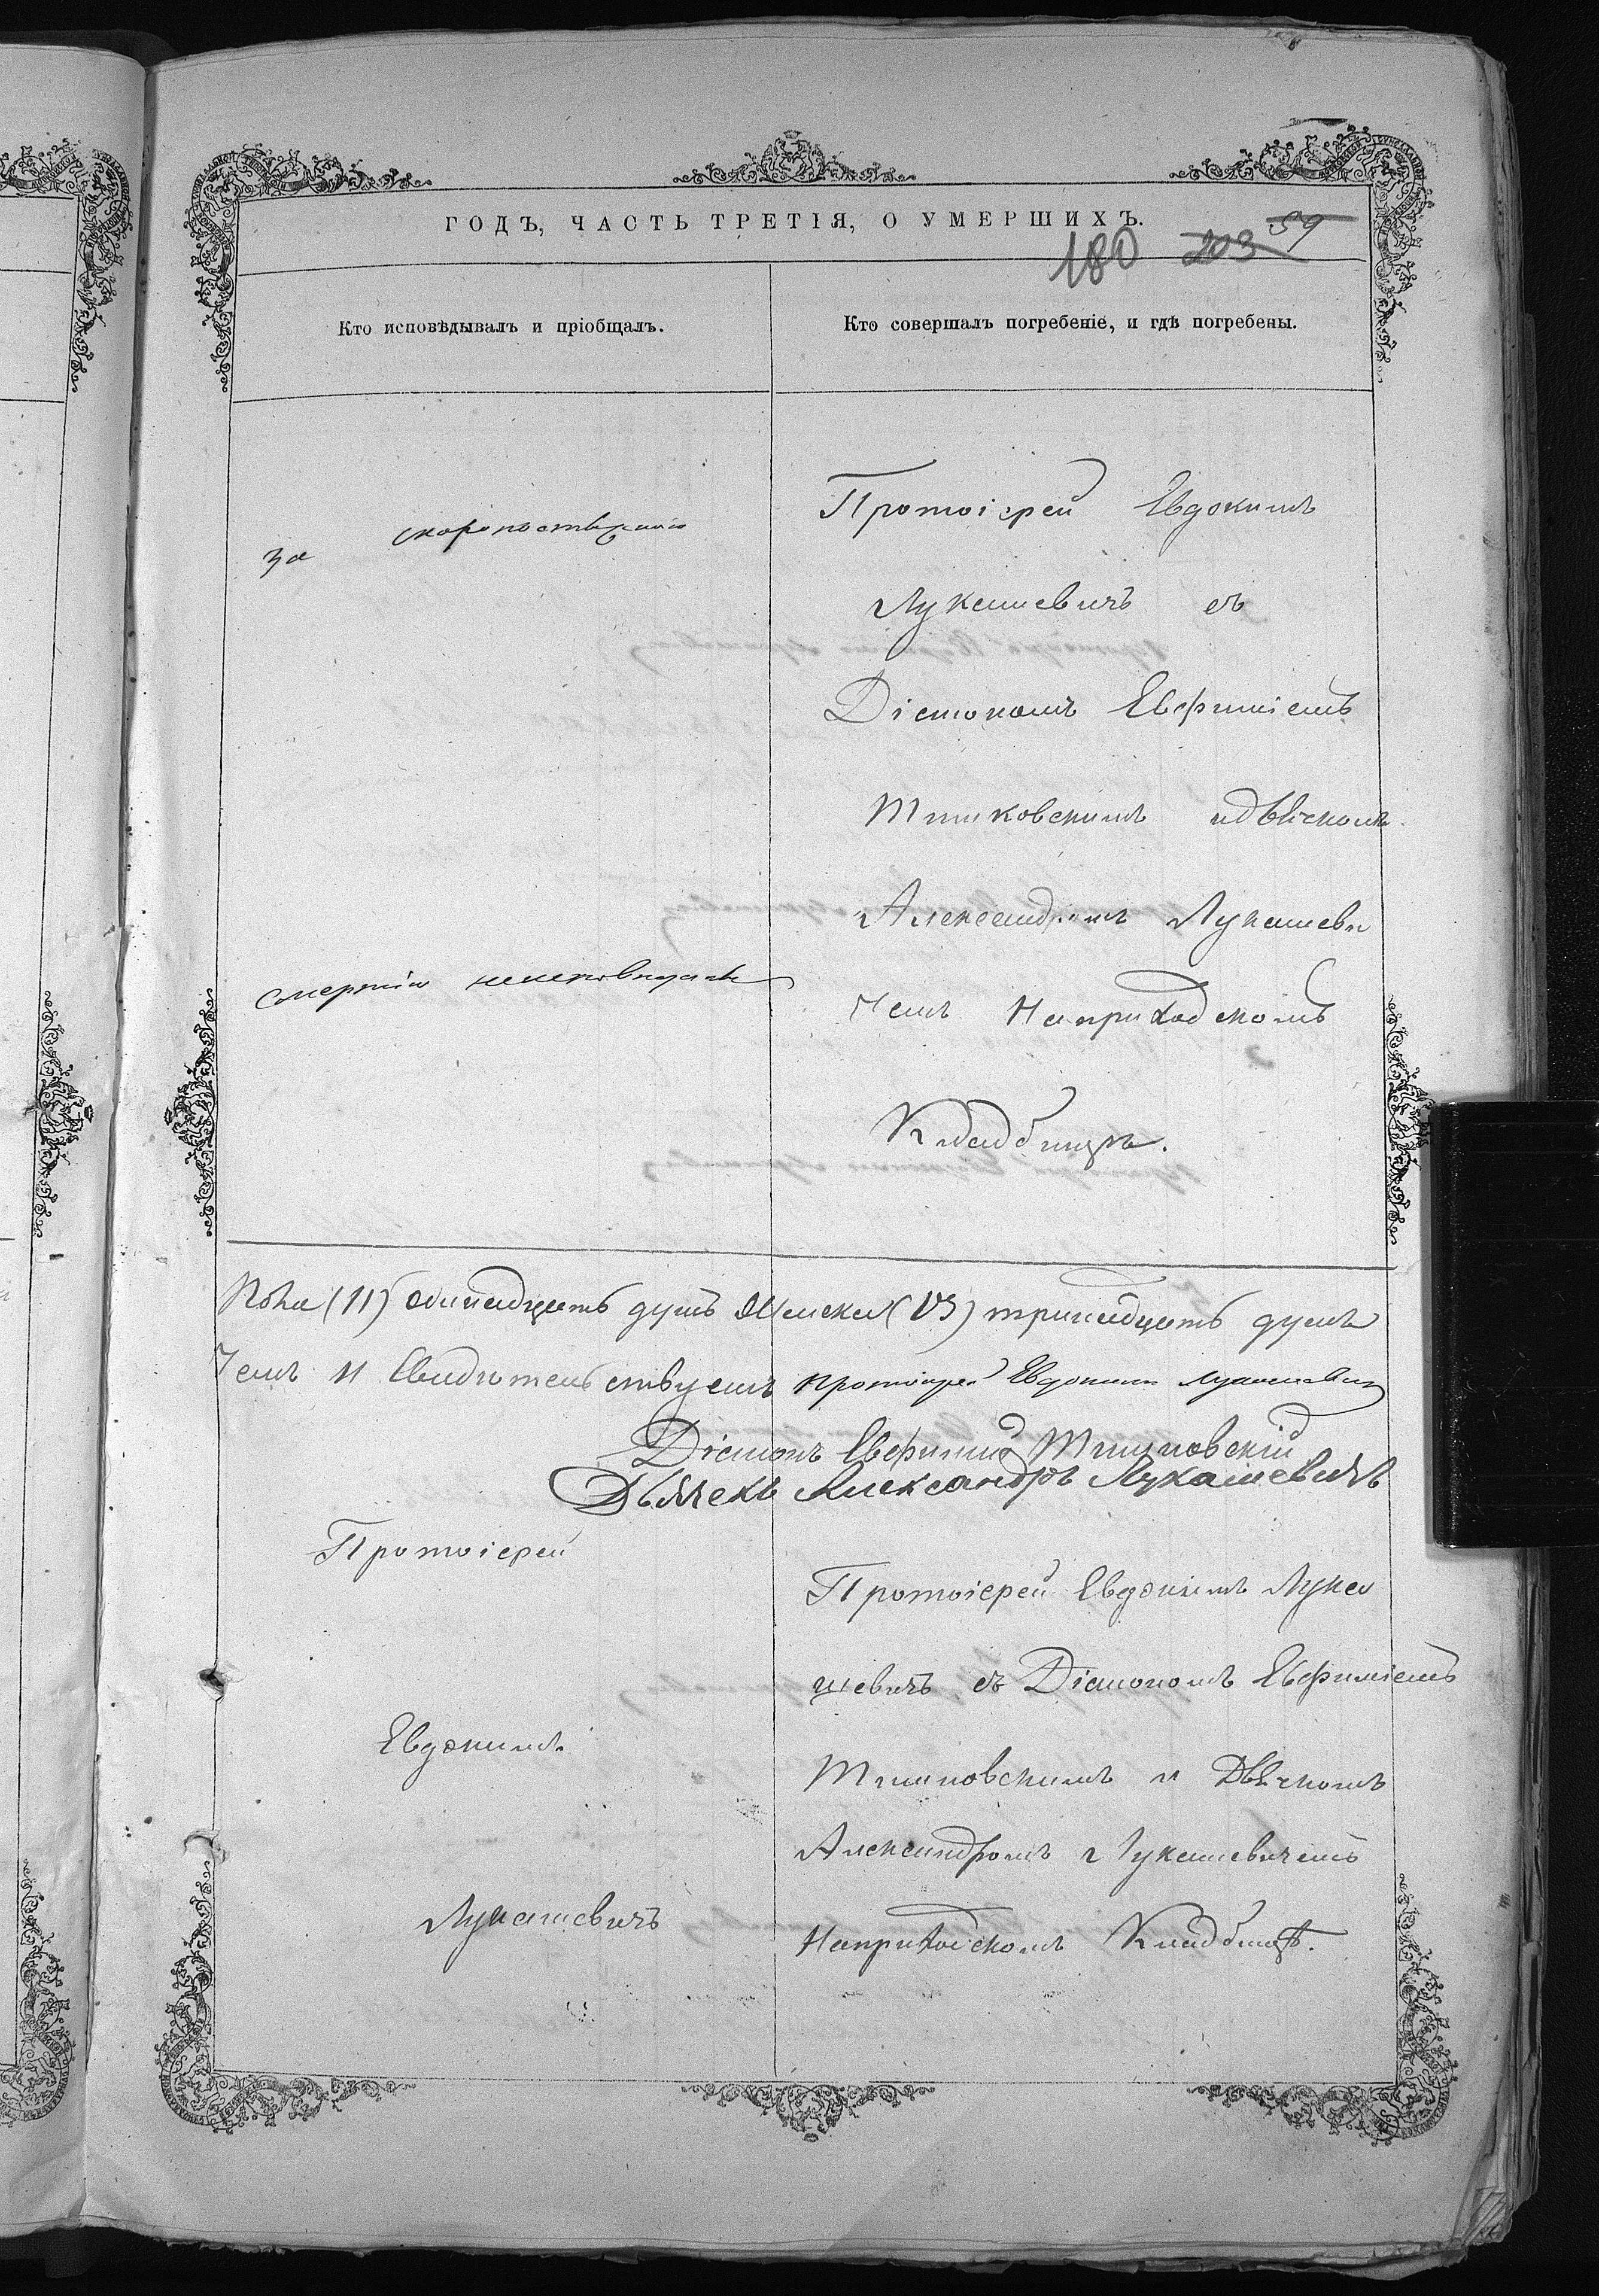 ГОДЪ, ЧАСТЬ ТРЕТІЯ, О УМЕРШИХЪ.
180 203 59
Кто исповѣдывалъ и пріобщалъ.
Кто совершалъ погребеніе, и гдѣ погребены.
за скоропостижною
смертію неисповѣдана
Протоіерей Евдокимъ
Лукашевичъ съ
Діакономъ Евфиміемъ
Тишковскимъ идьячкомъ
Александромъ Лукашеви
чемъ Наприходскомъ
Кладбищѣ.
пола (11) одинадцать душъ Женска (13) тринадцать душъ
чемъ И Свидѣтельствуемъ протоіерей Евдокимъ Лукашевичъ
Діаконъ Евфимій Тишковскій
Дьячекъ Александръ Лукашевичъ
Протоіерей
Евдокимъ
Лукашевичъ
Протоіерей Евдокимъ Лука
шевичъ съ Діакономъ Евфиміемъ
Тишковскимъ и Дьячкомъ
Александромъ Лукашевичемъ
Наприходскомъ Кладбищѣ.